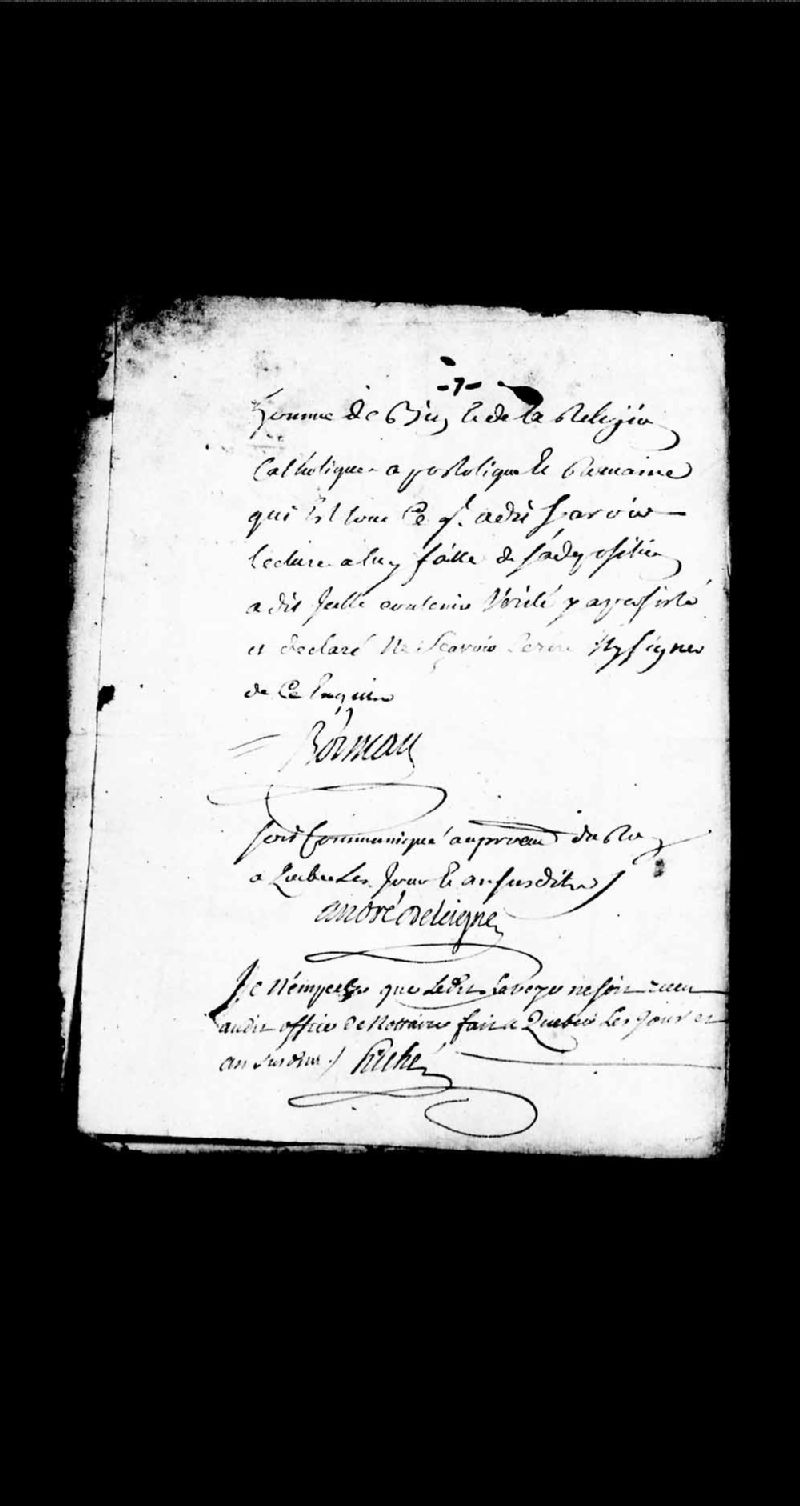 -7-
homme de Bien et de la Religion
Catholique apostolique et Romaine
qui Est tout Ce q. a dit Sçavoir
lecture a luy faitte de sa deposition
a dit Jcelle contenir Verité y a persisté
et declaré Ne Sçavoir Ecrire Ny signer
de Ce Enquis
soit Communiqué au procureur du Roy
a Quebec Les Jour et an susdits
André Deleigne
Je N'empeche que Ledit ne soit receu
audit office de Nottaire fait a Quebec Les Jour et
an susdits
hiché